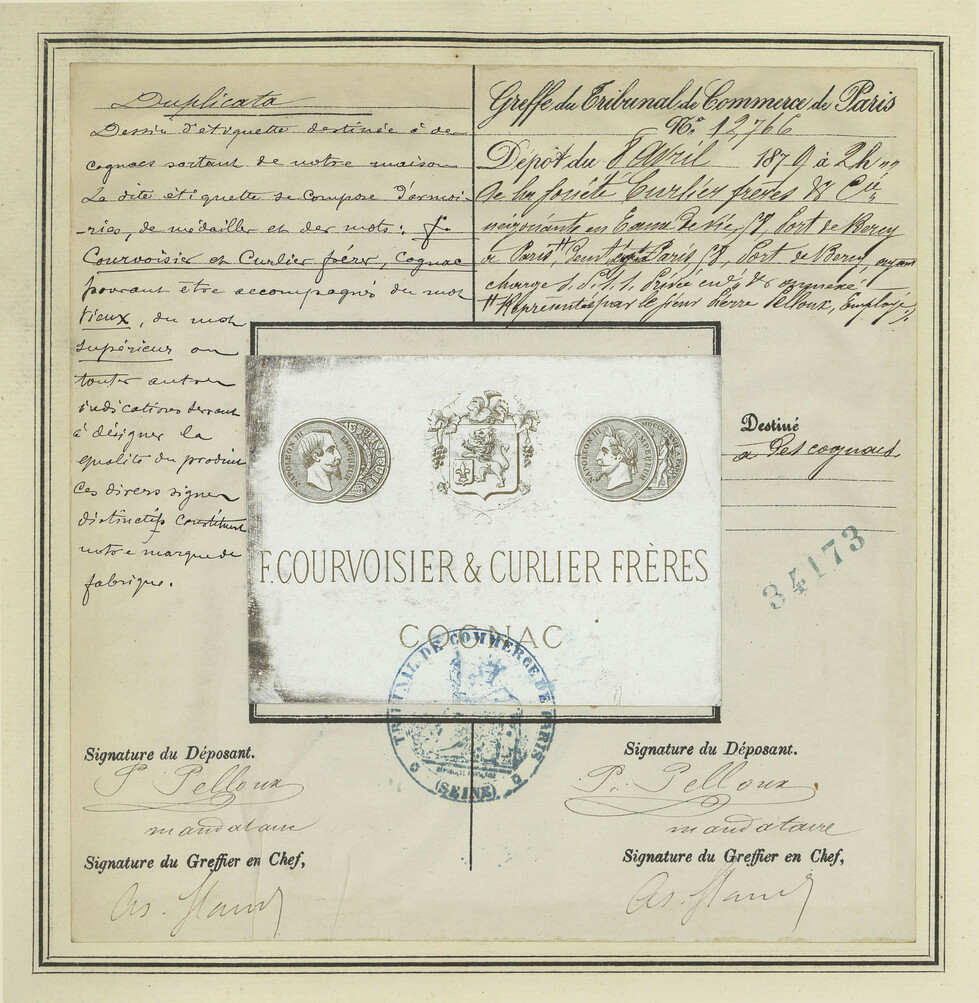 Duplicata
Dessin d'étiquette destinée à des
cognacs sortant de notre maison
La dite étiquette se compose d'armoi-
-ries, de médailles et des mots: F.
Courvoisier et Curlier frères, Cognac
pouvant être accompagnés du mot
Vieux, du mot
Supérieur ou
toutes autres
indications servant
à désigner la
qualité du produit
Ces divers signes
distinctifs constituent
notre marque de
fabrique.
Greffe du Tribunal de Commerce de Paris
N° 12,766
Dépôt du 8 avril 1879 à 2h
de la Société Curlier frères & Cie
négociants en Eaux de vie, 58, Port de Bercy
à Paris, Paris 58, Port de Bercy, ayant
charge
Représentés par le sieur Pierre Pelloux, Employé
Destiné
à des cognacs
34173
NAPOLEON III EMPEREUR
NAPOLEON III EMPEREUR
F. COURVOISIER & CURLIER FRÈRES
COGNAC
TRIBUNAL DE COMMERCE DE PARIS
(SEINE)
Signature du Déposant.
P. Pelloux
mandataire
Signature du Greffier en Chef,
Signature du Déposant.
P. Pelloux
mandataire
Signature du Greffier en Chef,